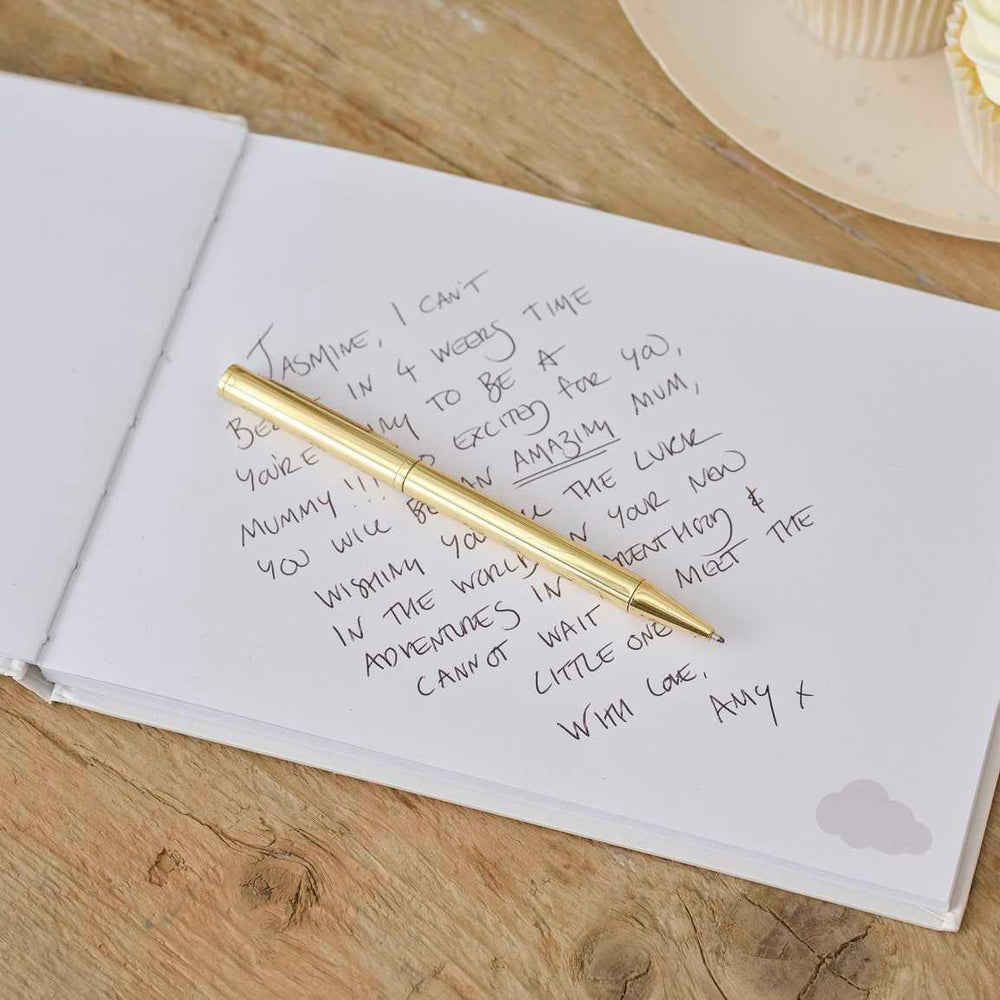 JASMINE, I CAN'T
IN 4 WEEKS TIME
YOU'RE TO BE A
MUMMY!!! EXCITED FOR YOU,
YOU WILL BE AN AMAZING MUM,
WISHING YOU THE LUCK
IN THE WORLD IN YOUR NEW
ADVENTURES IN &
CANNOT WAIT MEET THE
LITTLE ONE
WITH LOVE,
AMY X